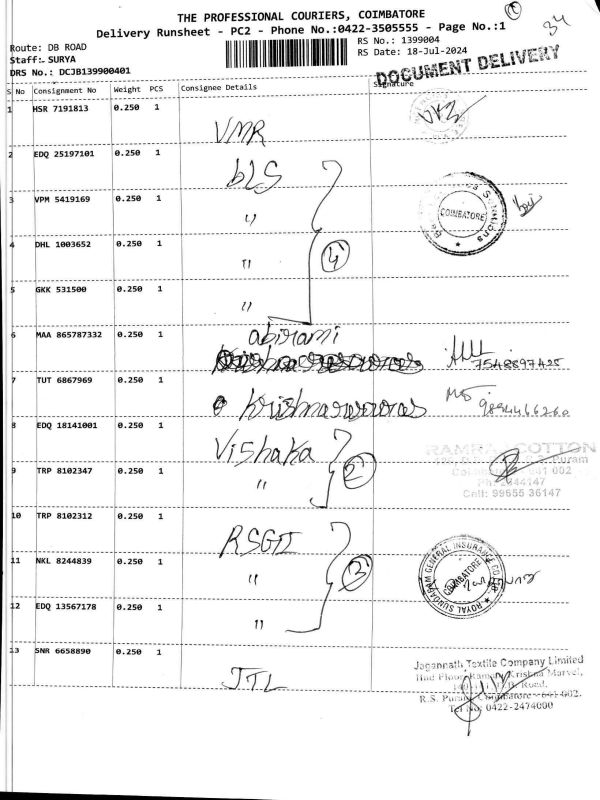 THE PROFESSIONAL COURIERS, COIMBATORE
Delivery Runsheet - PC2 - Phone No.:0422-3505555 - Page No.:1
34
Route: DB ROAD
RS No.: 1399004
Staff: SURYA
RS Date: 18-Jul-2024
DRS No.: DCJB139900401
DOCUMENT DELIVERY
S No Consignment No Weight PCS Consignee Details Signature
1 HSR 7191813 0.250 1
VMR
2 EDQ 25197101 0.250 1
bLS
3 VPM 5419169 0.250 1
"
COIMBATORE
4 DHL 1003652 0.250 1
"
4
5 GKK 531500 0.250 1
"
6 MAA 865787332 0.250 1
abirami
7548897425
7 TUT 6867969 0.250 1
8 EDQ 18141001 0.250 1
Vishaka
COTTON
R.S. Puram
641 002
9 TRP 8102347 0.250 1
"
2
Cell: 99655 36147
10 TRP 8102312 0.250 1
RSGI
11 NKL 8244839 0.250 1
"
3
ROYAL SUNDARAM GENERAL INSURANCE CO. LTD
COIMBATORE
12 EDQ 13567178 0.250 1
"
13 SNR 6658890 0.250 1
JTL
Jagannath Textile Company Limited
IInd Floor Raman Krishna Marvel,
D.B. Road,
R.S. Puram, Coimbatore - 641 002.
Tel No: 0422-2474000